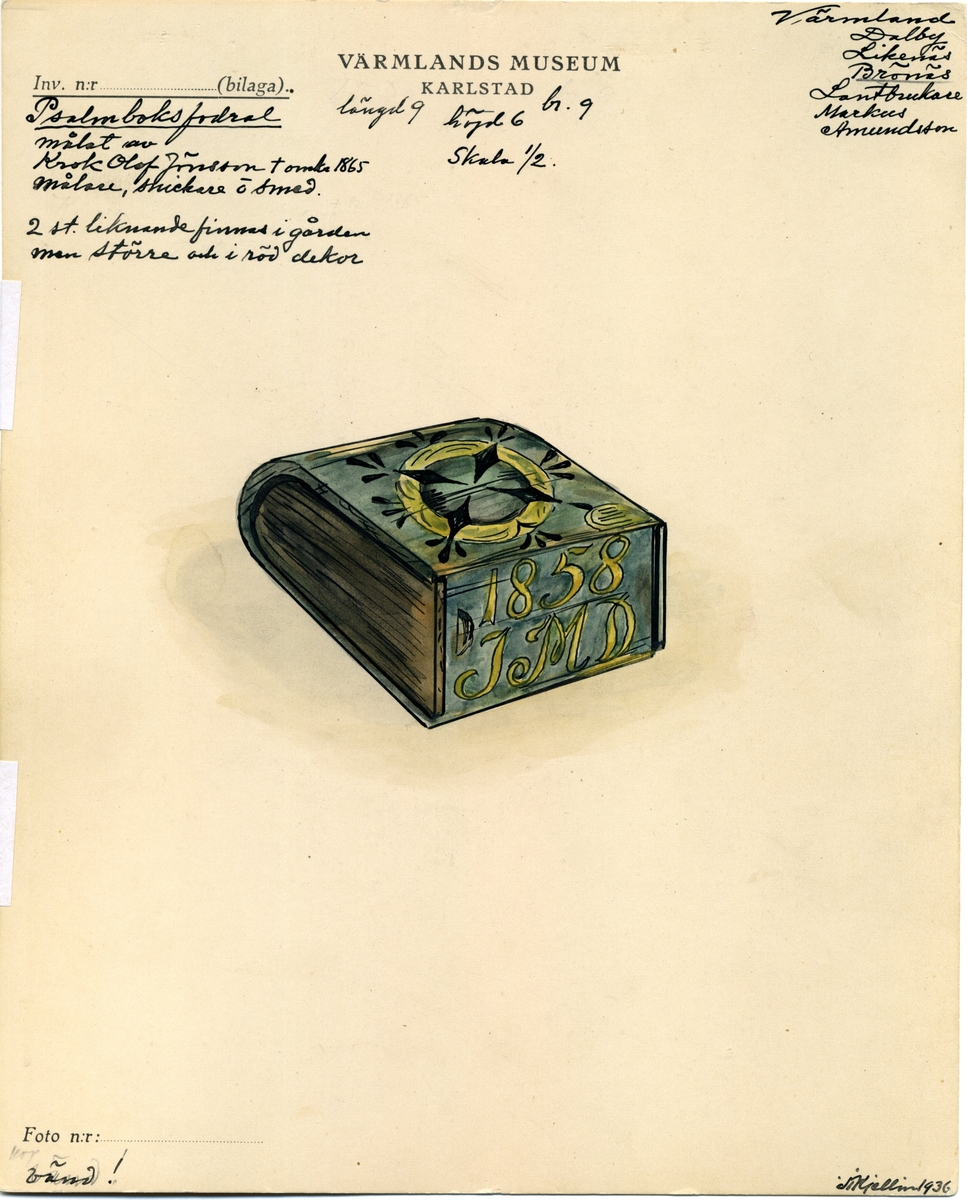 VÄRMLANDS MUSEUM
KARLSTAD
Inv. n:r (bilaga)..
Psalmboksfodral
målat av
Krok Olof Jönsson † omkr 1865
målare, snickare o smed.
2 st. liknande finnas i gården
men större och i röd dekor
längd 9 höjd 6 br. 9
Skala 1/2.
Värmland
Dalby
Likenäs
Brönäs
Lantbrukare
Markus
Amundsson
1858
JMD
Foto n:r:
vänd!
Kjellin 1936